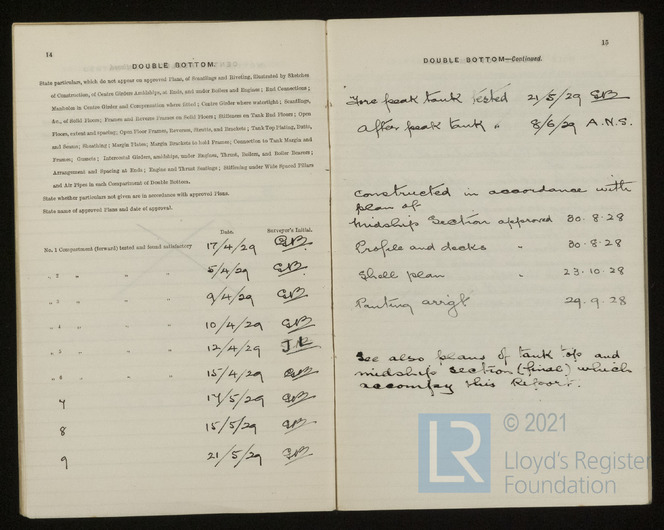 14
DOUBLE BOTTOM.
State particulars, which do not appear on approved Plans, of Scantlings and Riveting, illustrated by Sketches
of Construction, of Centre Girders Amidships, at Ends, and under Boilers and Engines; End Connections;
Manholes in Centre Girder and Compensation where fitted; Centre Girder where watertight; Scantlings,
&c., of Solid Floors; Frames and Reverse Frames on Solid Floors; Stiffeners on Tank End Floors; Open
Floors, extent and spacing; Open Floor Frames, Reverses, Struts, and Brackets; Tank Top Plating, Butts,
and Seams; Sheathing; Margin Plates; Margin Brackets to hold Frames; Connection to Tank Margin and
Frames; Gussets; Intercostal Girders, amidships, under Engines, Thrust, Boilers, and Boiler Bearers;
Arrangement and Spacing at Ends; Engine and Thrust Seatings; Stiffening under Wide Spaced Pillars
and Air Pipes in each Compartment of Double Bottom.
State whether particulars not given are in accordance with approved Plans.
State name of approved Plans and date of approval.
Date. Surveyor's Initial.
No. 1 Compartment (forward) tested and found satisfactory 17/4/29 GB
" 2 " " " 5/4/29 GB
" 3 " " " 9/4/29 GB
" 4 " " " 10/4/29 GB
" 5 " " " 12/4/29
" 6 " " " 15/4/29 GB
7 17/5/29 GB
8 15/5/29 GB
9 21/5/29 GB
15
DOUBLE BOTTOM—Continued.
Fore peak tank tested 21/5/29 GB
After peak tank " 8/6/29 A.N.S.
Constructed in accordance with
plan of
Midship Section approved 30.8.28
Profile and decks " 30.8.28
Shell plan " 23.10.28
Panting arrgt 29.9.28
See also plans of tank top and
midship section (final) which
accompany this Report.
© 2021
LR
Lloyd's Register
Foundation